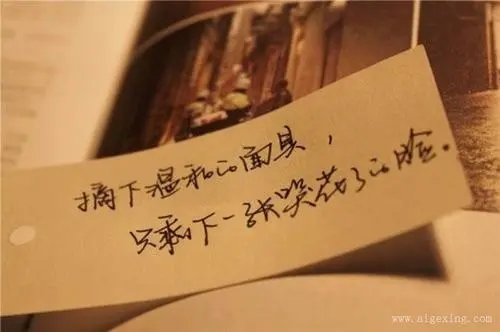 摘下温和的面具，
只剩下一张哭花了的脸。
www.aigexing.com